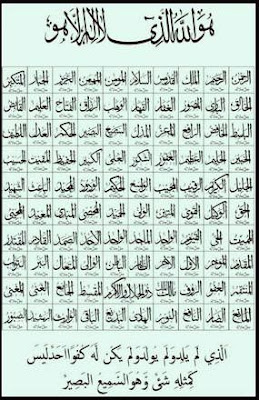 هو الله الذي لا اله الا هو
الرحمن الرحيم الملك القدوس السلام المؤمن المهيمن العزيز الجبار المتكبر
الخالق البارئ المصور الغفار القهار الوهاب الرزاق الفتاح العليم القابض
الباسط الخافض الرافع المعز المذل السميع البصير الحكم العدل اللطيف
الخبير الحليم العظيم الغفور الشكور العلي الكبير الحفيظ المقيت الحسيب
الجليل الكريم الرقيب المجيب الواسع الحكيم الودود المجيد الباعث الشهيد
الحق الوكيل القوي المتين الولي الحميد المحصي المبدئ المعيد المحيي
المميت الحي القيوم الواجد الماجد الواحد الاحد الصمد القادر المقتدر
المقدم المؤخر الاول الاخر الظاهر الباطن الوالي المتعال البر التواب
المنتقم العفو الرؤف مالك الملك ذوالجلال والاكرام المقسط الجامع الغني المغني
المانع الضار النافع النور الهادي البديع الباقي الوارث الرشيد الصبور
الَذِي لَم يَلِد وَلَم يُولَد وَلَم يَكُن لَه كُفُوًا اَحَد لَيسَ
كَمِثلِهِ شَئٌ وَهُوَ السَمِيعُ البَصِيرُ